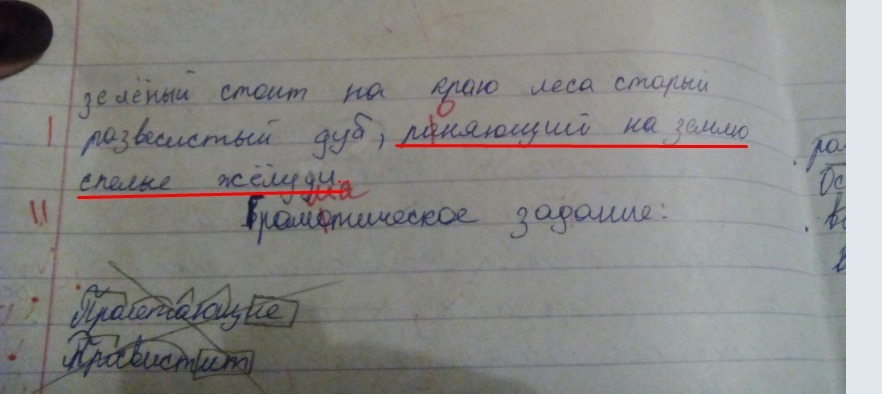 зелёный стоит на краю леса старый
развесистый дуб, раняющий на землю
спелые жёлуди.
Граматическое задание:
Пролетающие
Просвистит